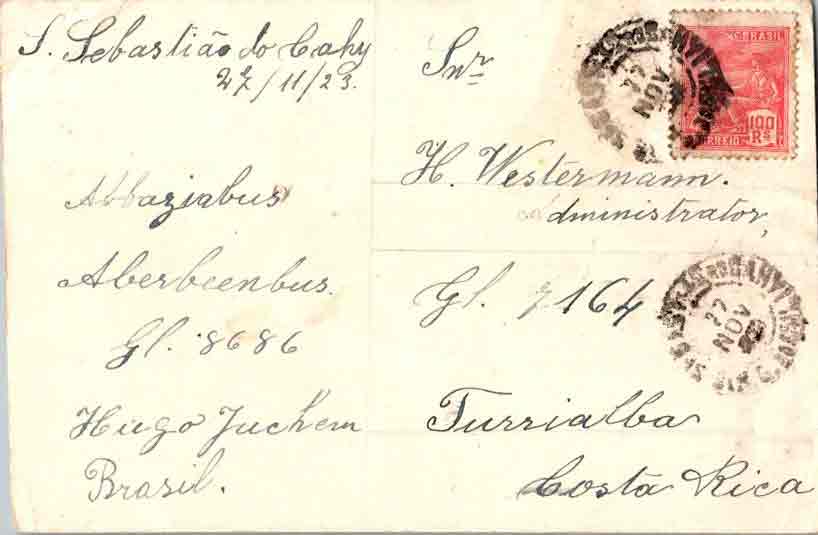 S. Sebastião do Cahy
27/11/23.
Abbaziabus
Aberbeenbus.
Gl. 8686
Hugo Juchem
Brasil.
Snr
H. Westermann.
administrator,
Gl. 7164
Turrialba
Costa Rica
BRASIL
CORREIO
100
Rs
27
NOV
27
NOV